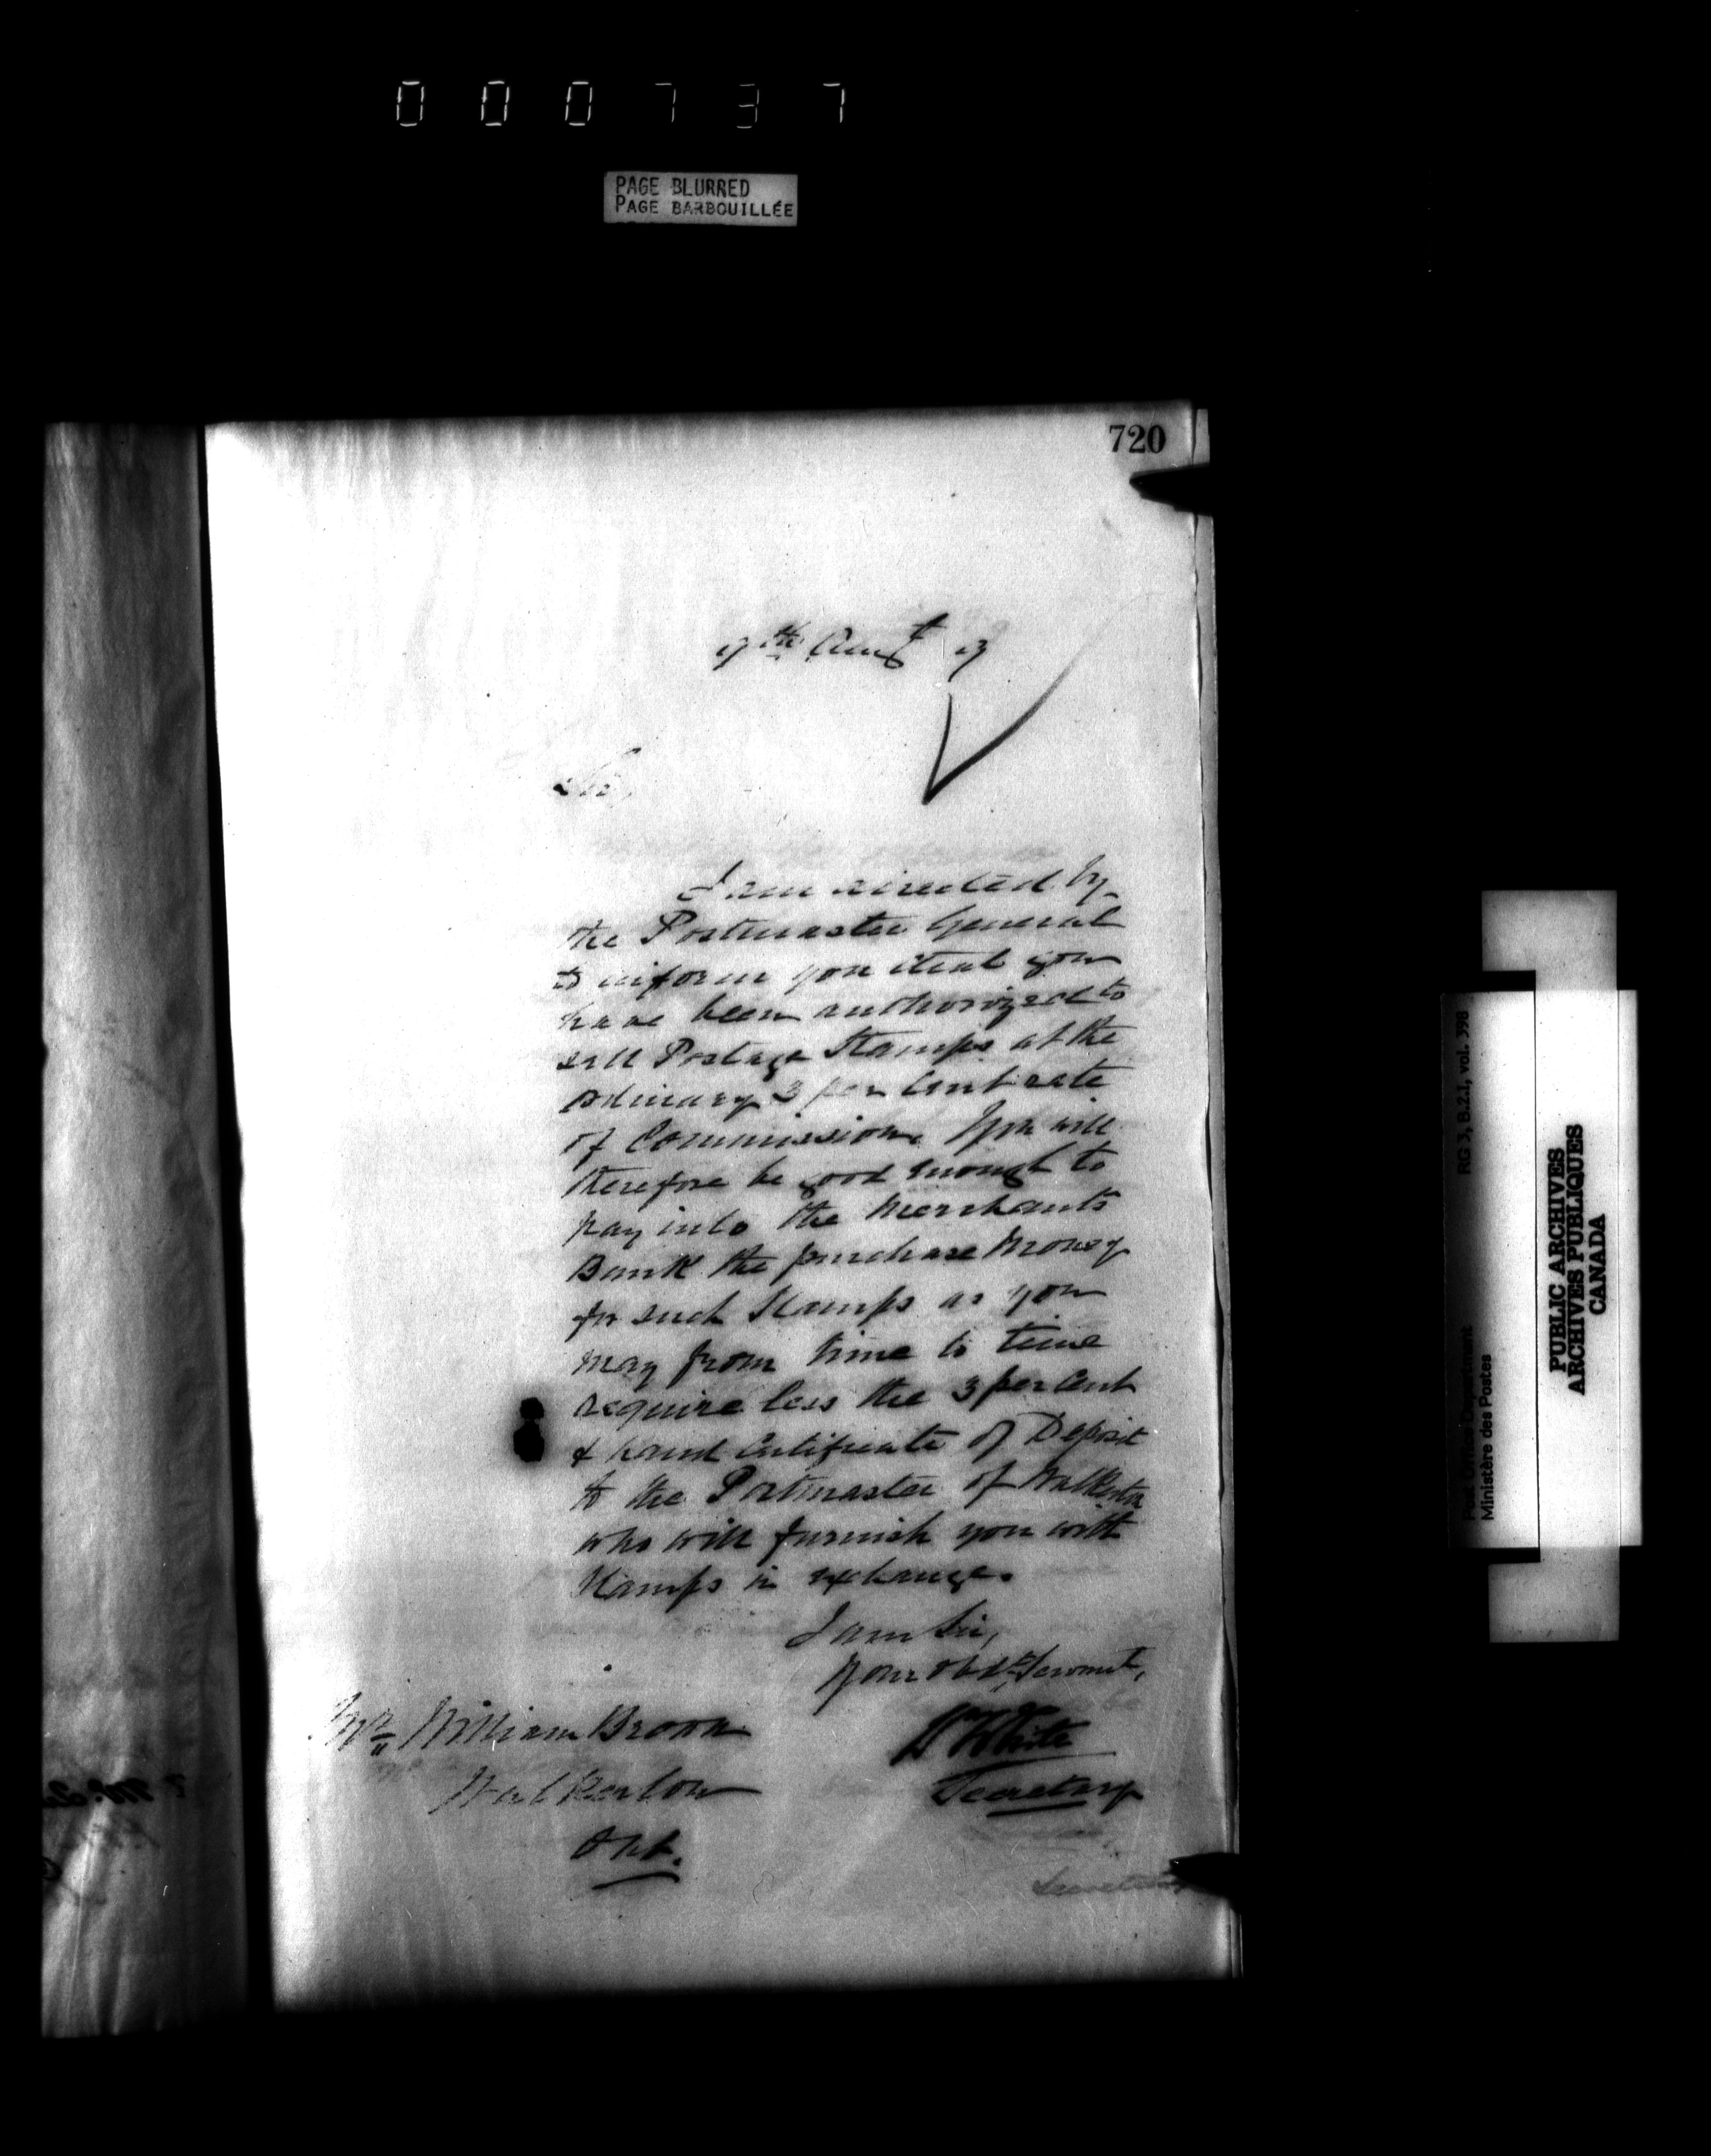 000737
PAGE BLURRED
PAGE BARBOUILLÉE
720
Augt
Sir,
I am directed by
the Postmaster General
to inform you that you
have been authorized to
sell Postage Stamps at the
ordinary 3 per Cent rate
of Commission. You will
therefore be good enough to
pay into the Merchants
Bank the purchase Money
for such Stamps as you
may from time to time
require less the 3 per Cent
& hand Certificate of Deposit
to the Postmaster of Walkerton
who will furnish you with
Stamps in exchange.
I am Sir,
Your obdt Servant,
Wm White
Secretary
Mr William Brown
Walkerton
Ont.
Secretary
RG 3, B.2.1, vol. 398
Post Office Department
Ministère des Postes
PUBLIC ARCHIVES
ARCHIVES PUBLIQUES
CANADA